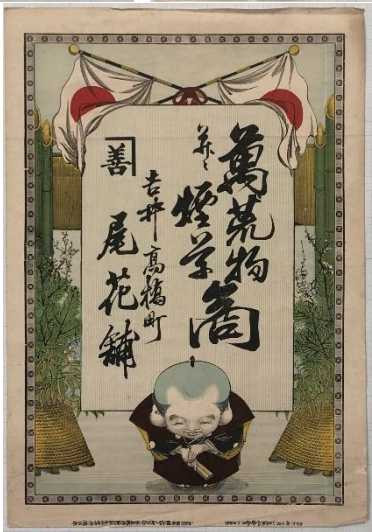 萬荒物
並ニ煙草商
善
吉井高橋町
尾花舗